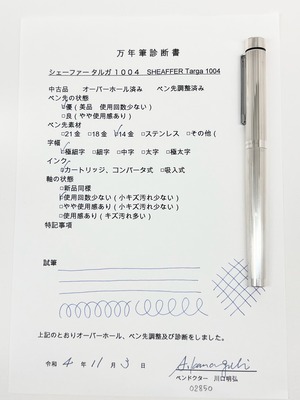 万年筆診断書
シェーファー タルガ 1004 SHEAFFER Targa 1004
中古品 オーバーホール済み ペン先調整済み
ペン先の状態
☑優(美品 使用回数少ない)
□良(やや使用感あり)
ペン先素材
□21金 □18金 ☑14金 □ステンレス □その他(
字幅
☑極細字 □細字 □中字 □太字 □極太字
インク
☑カートリッジ、コンバータ式 □吸入式
軸の状態
□新品同様
☑使用回数少ない(小キズ汚れ少ない)
□やや使用感あり(小キズ汚れ少ない)
□使用感あり(キズ汚れ多い)
特記事項
試筆
上記のとおりオーバーホール、ペン先調整及び診断をしました。
令和 4 年 11 月 3 日
ペンドクター 川口明弘
02850